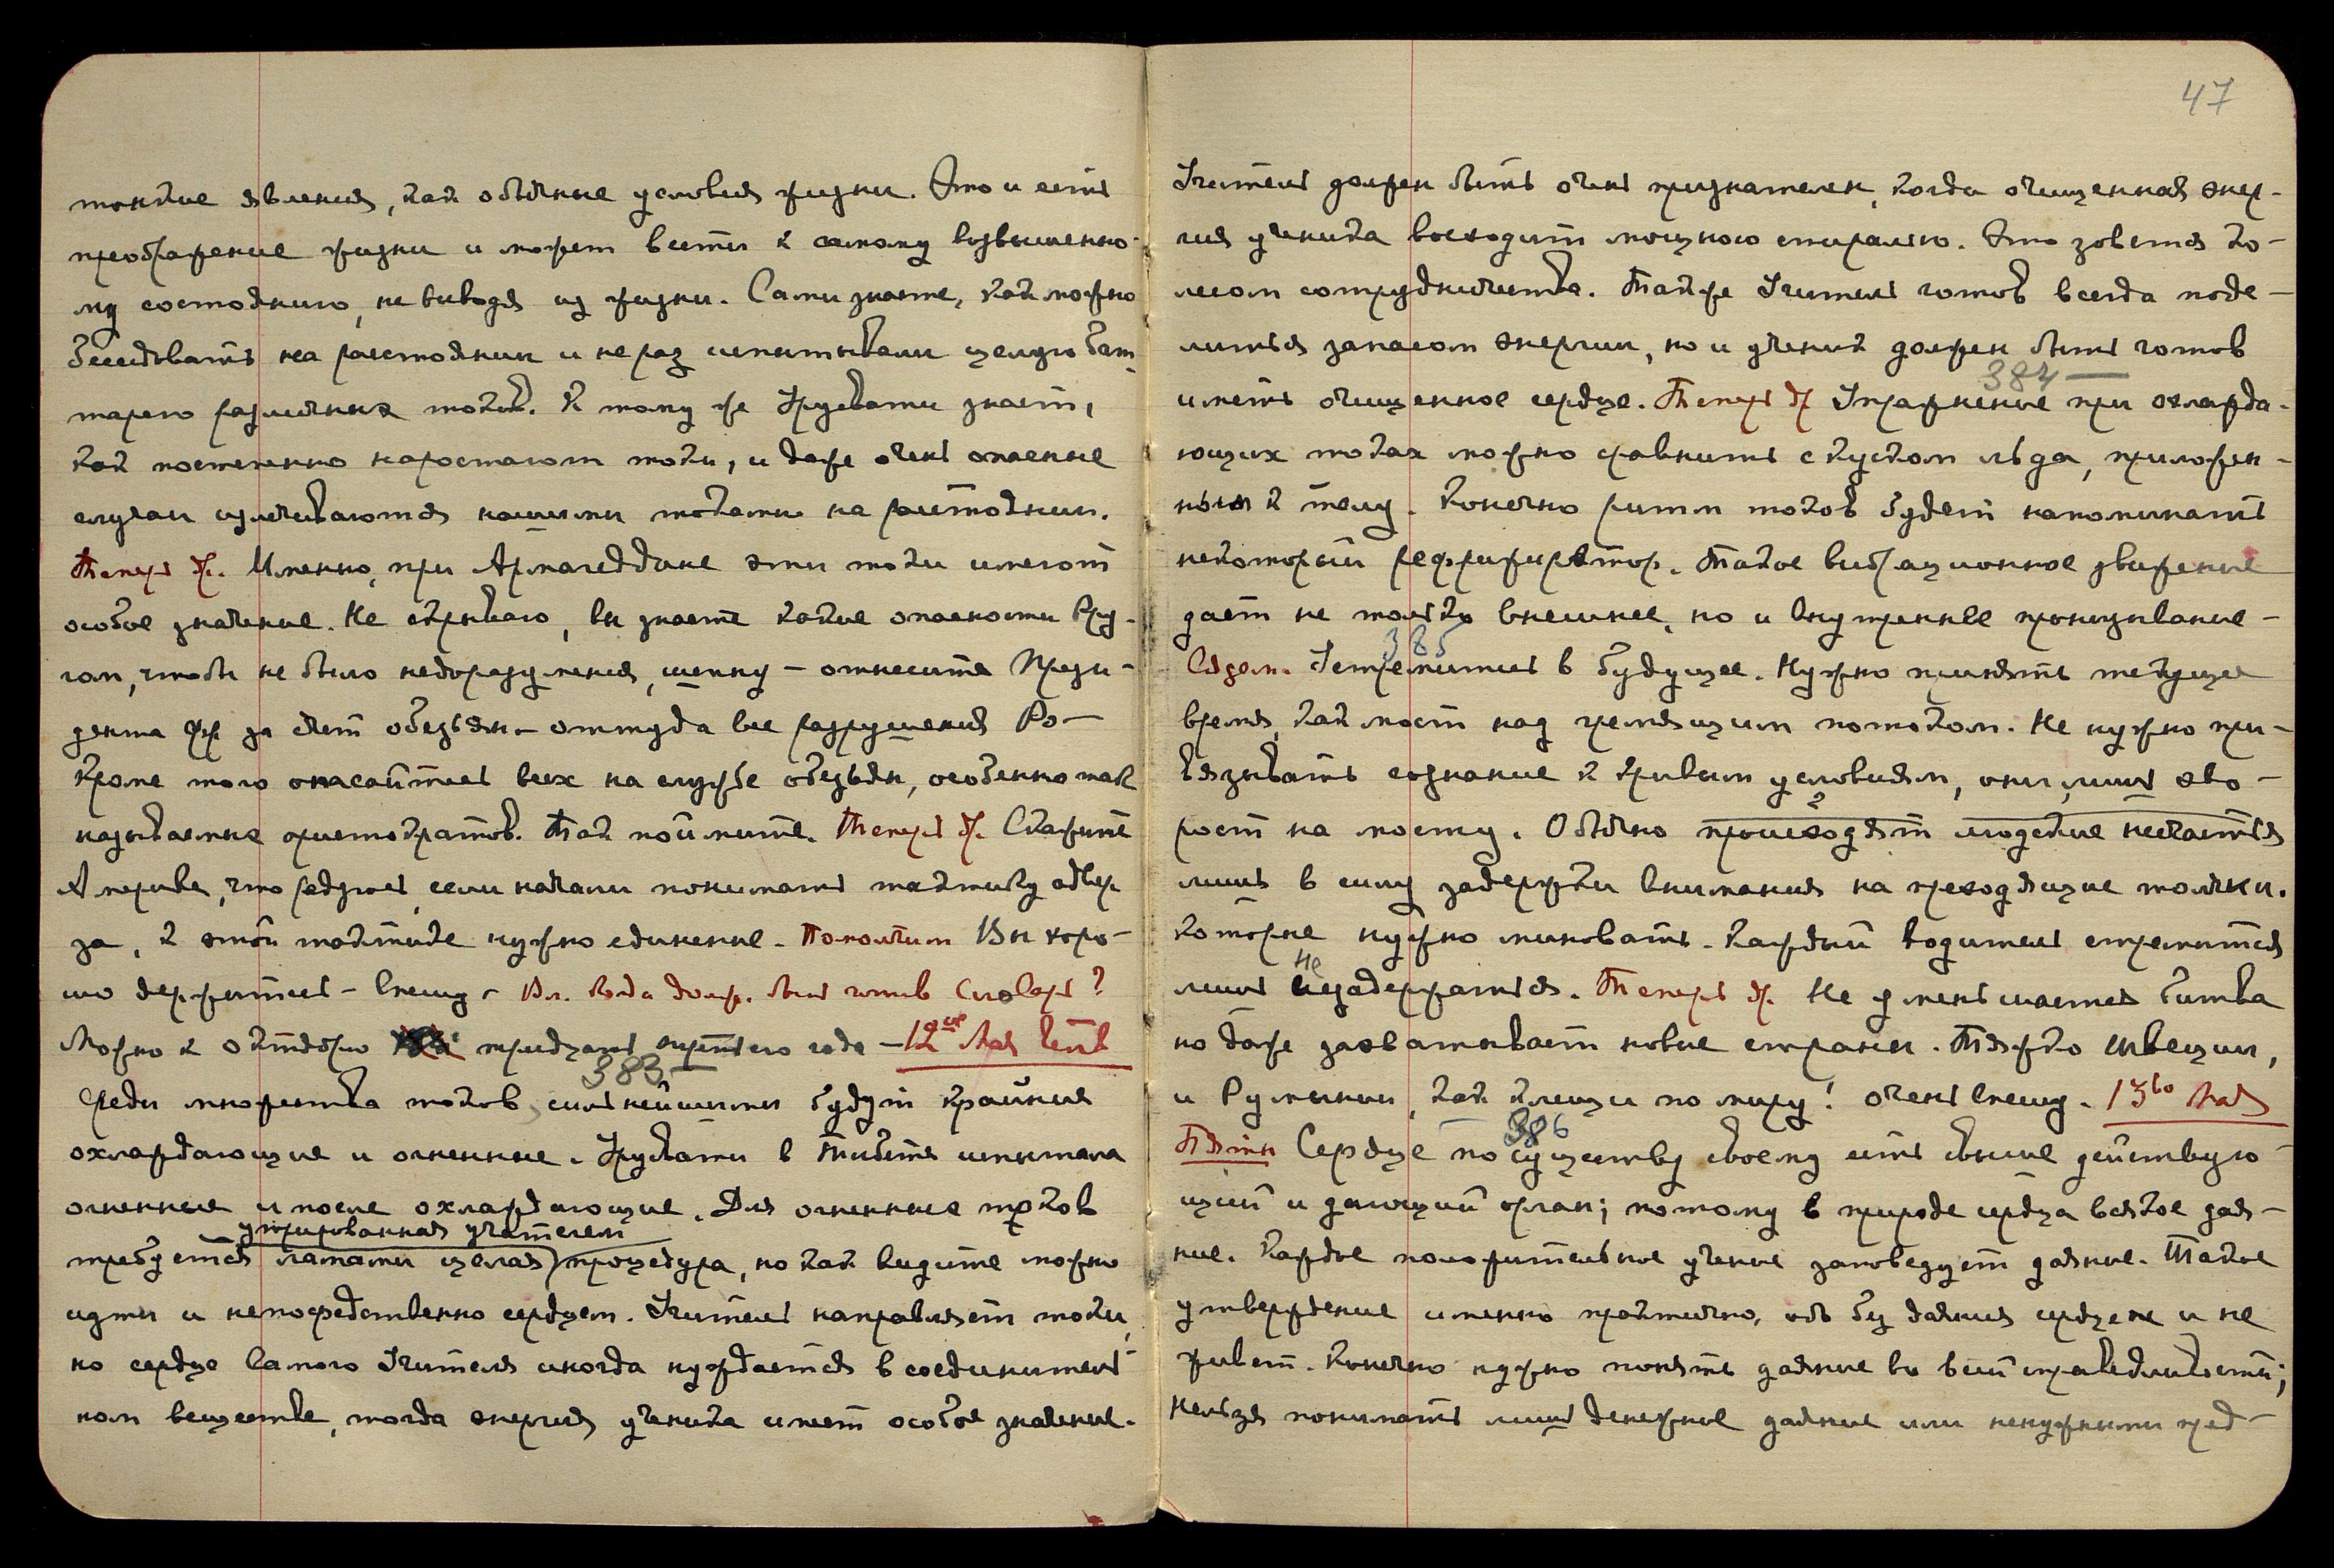 тонкие явления, как обычные условия жизни. Это и есть
преображение жизни и может вести к самому возвышенно-
му состоянию, не выводя из жизни. Сами знаете, как можно
беседовать на расстоянии и не раз испытывали целую бат-
тарею различных токов. К тому же Урусвати знает,
как постепенно наростают токи, и даже очень опасные
случаи излечиваются нашими токами на расстоянии.
Теперь др. Именно, при Армагеддоне эти токи имеют
особое значение. Не скрываю, вы знаете какие опасности кру-
гом, чтобы не было недоразумения, шепну – отнесите Прези-
дента Фр за счет обезьян – оттуда все разрушения Ро–
Кроме того опасайтесь всех на службе обезьян, особенно так
называемых аристократов. Так поймите. Теперь др. Скажите
Америке, что радуюсь, если начали понимать тактику адвер
за, к этой тактике нужно единение. Помолчим Вы хоро-
шо держитесь – спешу – Вл. когда долж. быть готов Словарь?
Можно к октябрю тридцать третьего года – 12ое Мая Четв
383 –
Среди множества токов, сильнейшими будут крайние
охлаждающие и огненные. Урусвати в Тибете испытала
огненные и после охлаждающие. Для огненных токов
утрированная учителем
требуется ламами целая процедура, но как видите можно
идти и непосредственно сердцем. Учитель направляет токи,
но сердце самого Учителя иногда нуждается в соединитель-
ном веществе, тогда энергия ученика имеет особое значение.
47
Учитель должен быть очень признателен, когда очищенная энер-
гия ученика восходит мощною спиралью. Это зовется ко-
лесом сотрудничества. Также Учитель готов всегда поде-
литься запасом энергии, но и ученик должен быть готов
384 –
иметь очищенное сердце. Теперь др Упражнение при охлажда-
ющих токах можно сравнить с куском льда, приложен-
ным к телу. Конечно ритм токов будет напоминать
некоторый рефрижиратор. Такое вибрационное движение
дает не только внешнее, но и внутреннее пронизывание –
385
Сядем. Устремитесь в будущее. Нужно принять текущее
время, как мост над гремящим потоком. Не нужно при-
вязывать сознание к кривым условиям, они лишь хво-
рост на мосту. Обычно происходят людские несчастья
лишь в силу задержки внимания на преходящие точки.
которые нужно миновать. Каждый водитель стремится
не
лишь незадержаться. Теперь др. Не уменьшается битва
но даже захватывает новые страны. Тяжко Швеции,
и Румынии, как клещи по миру! очень спешу. 13го Мая
386
Пятн Сердце по существу своему есть свыше действую-
щий и дающий орган; потому в природе сердца всякое дая-
ние. Каждое положительное учение заповедует даяние. Такое
утверждение именно практично, ибо без даяния сердце и не
живет. Конечно нужно понять даяние во всей справедливости;
Нельзя понимать лишь денежное даяние или ненужными пред-